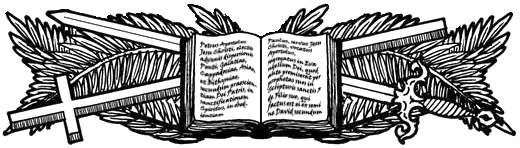 Petrus Apostolus
Jesu Christi, electis
advenis dispersionis
Ponti, Galatiae,
Cappadociae, Asiae,
et Bithyniae,
secundum praescien-
tiam Dei Patris, in
sanctificationem
Spiritus, in obed-
ientiam
Paulus, servus Jesu
Christi, vocatus
Apostolus,
segregatus in Eva-
gelium Dei, quod
ante promiserat per
prophetas suos in
Scripturis sanctis
de Filio suo, qui
factus est ei ex semi
ne David secundum